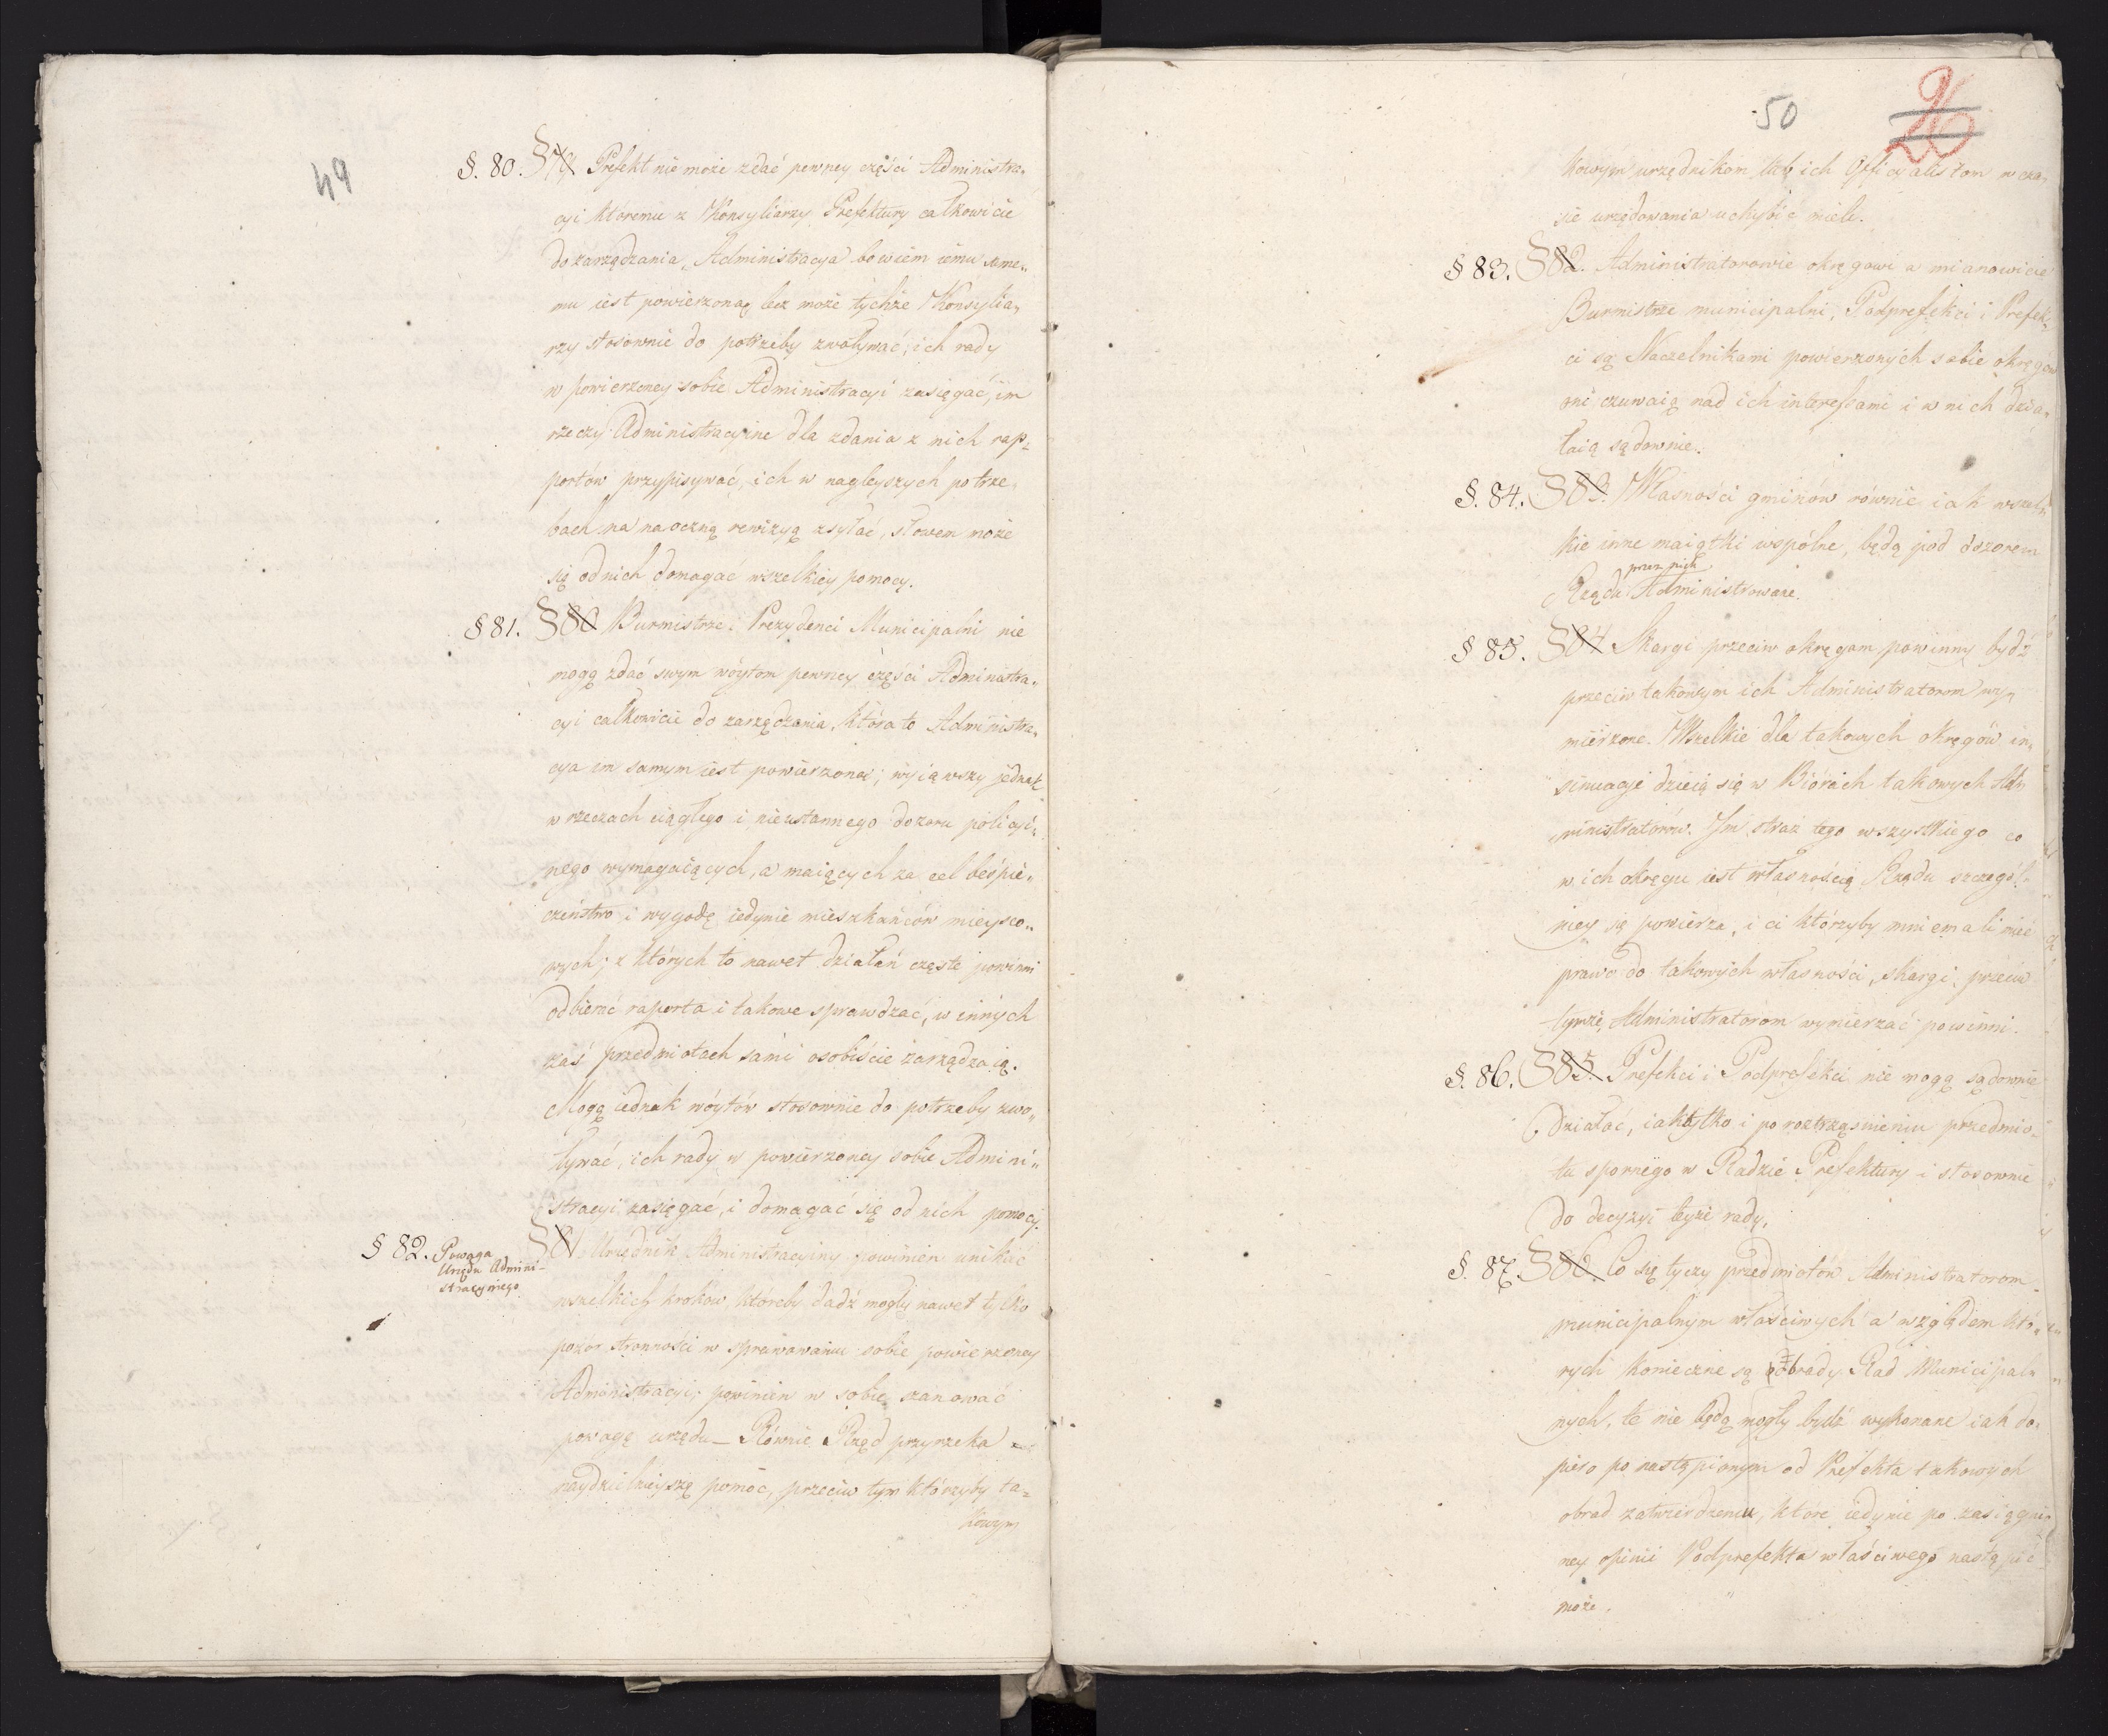 49
§. 80. §79 Prefekt nie może zdać pewney części Administra„
cyi któremu z Konsyliarzy Prefektury całkowicie
do zarządzania, Administracya bowiem iemu same„
mu iest powierzoną, lecz może tychże Konsylia„
rzy stosownie do potrzeby zwoływać, ich rady
w powierzoney sobie Administracyi zasięgać, im
rzeczy Administracyine dla zdania z nich rap„
portów przypisywać, ich w nagleyszych potrze„
bach na naoczną rewizyą zsyłać, słowem może
się od nich domagać wszelkiey pomocy.
§ 81. §80 Burmistrze i Prezydenci Municipalni nie
mogą zdać swym wóytom pewney części Administra„
cyi całkowicie do zarządzania, która to Administra„
cya im samym iest powierzona; wyiąwszy jednak
w rzeczach ciągłego i nieustannego dozoru policyi„
nego wymagaiących, a maiących za cel beśpie„
czeństwo i wygodę iedynie mieszkańców mieysco„
wych; z których to nawet działań częste powinni
odbierać raporta i takowe sprawdzać, w innych
zaś przedmiotach sami osobiście zarządzaią.
Mogą iednak wóytów stosownie do potrzeby zwo„
ływać, ich rady w powierzoney sobie Admini„
stracyi zasięgać, i domagać się od nich pomocy.
§ 82. Powaga
Urzędu Admini-
stracyinego
§81. Urzędnik Administracyiny powinien unikać
wszelkich kroków, któreby dadź mogły nawet tylko
pozór stronności w sprawowaniu sobie powierzoney
Administracyi; powinien w sobie szanować
powagę urzędu_ Równie Rząd przyrzeka
naydzielnieyszą pomoc, przeciw tym którzyby ta„
kowym
50
26
kowym urzędnikom lub ich Officyalistom w cza„
sie urzędowania uchybić mieli.
§ 83. §82. Administratorowie okręgowi a mianowicie
Burmistrze municipalni, Podprefekci i Prefek„
ci są Naczelnikami powierzonych sobie okręgów
oni czuwaią nad ich interessami i w nich dzia„
łaią sądownie.
§. 84. §83. Własności gminów równie iak wszel„
kie inne maiątki wspólne, będą pod dozorem
Rządu przez nich Administrowane.
§ 85. §84 Skargi przeciw okręgom powinny bydź
przeciw takowym ich Administratorom wy„
mierzone. Wszelkie dla takowych okręgów in„
sinuacye dzieią się w Biórach takowych Ad„
ministratorów. Im straż tego wszystkiego co
w ich okręgu iest własnością Rządu szczegól„
niey się powierza, i ci którzyby mniemali mieć
prawo do takowych własności, skargi przeciw
tymże Administratorom wymierzać powinni.
§. 86. §85. Prefekci i Podprefekci nie mogą sądownie
działać, iak tylko i po roztrząśnieniu przedmio„
tu spornego w Radzie Prefektury i stosownie
do decyzyi teyże rady.
§. 87. §86. Co się tyczy przedmiotów Administratorom
municipalnym właściwych a względem któ„
rych konieczne są obrady Rad Municipal„
nych, te nie będą mogły bydź wykonane iak do„
piero po nastąpionym od Prefekta takowych
obrad zatwierdzeniu, które iedynie po zasiągnio„
ney opinii Podprefekta właściwego nastąpić
może.